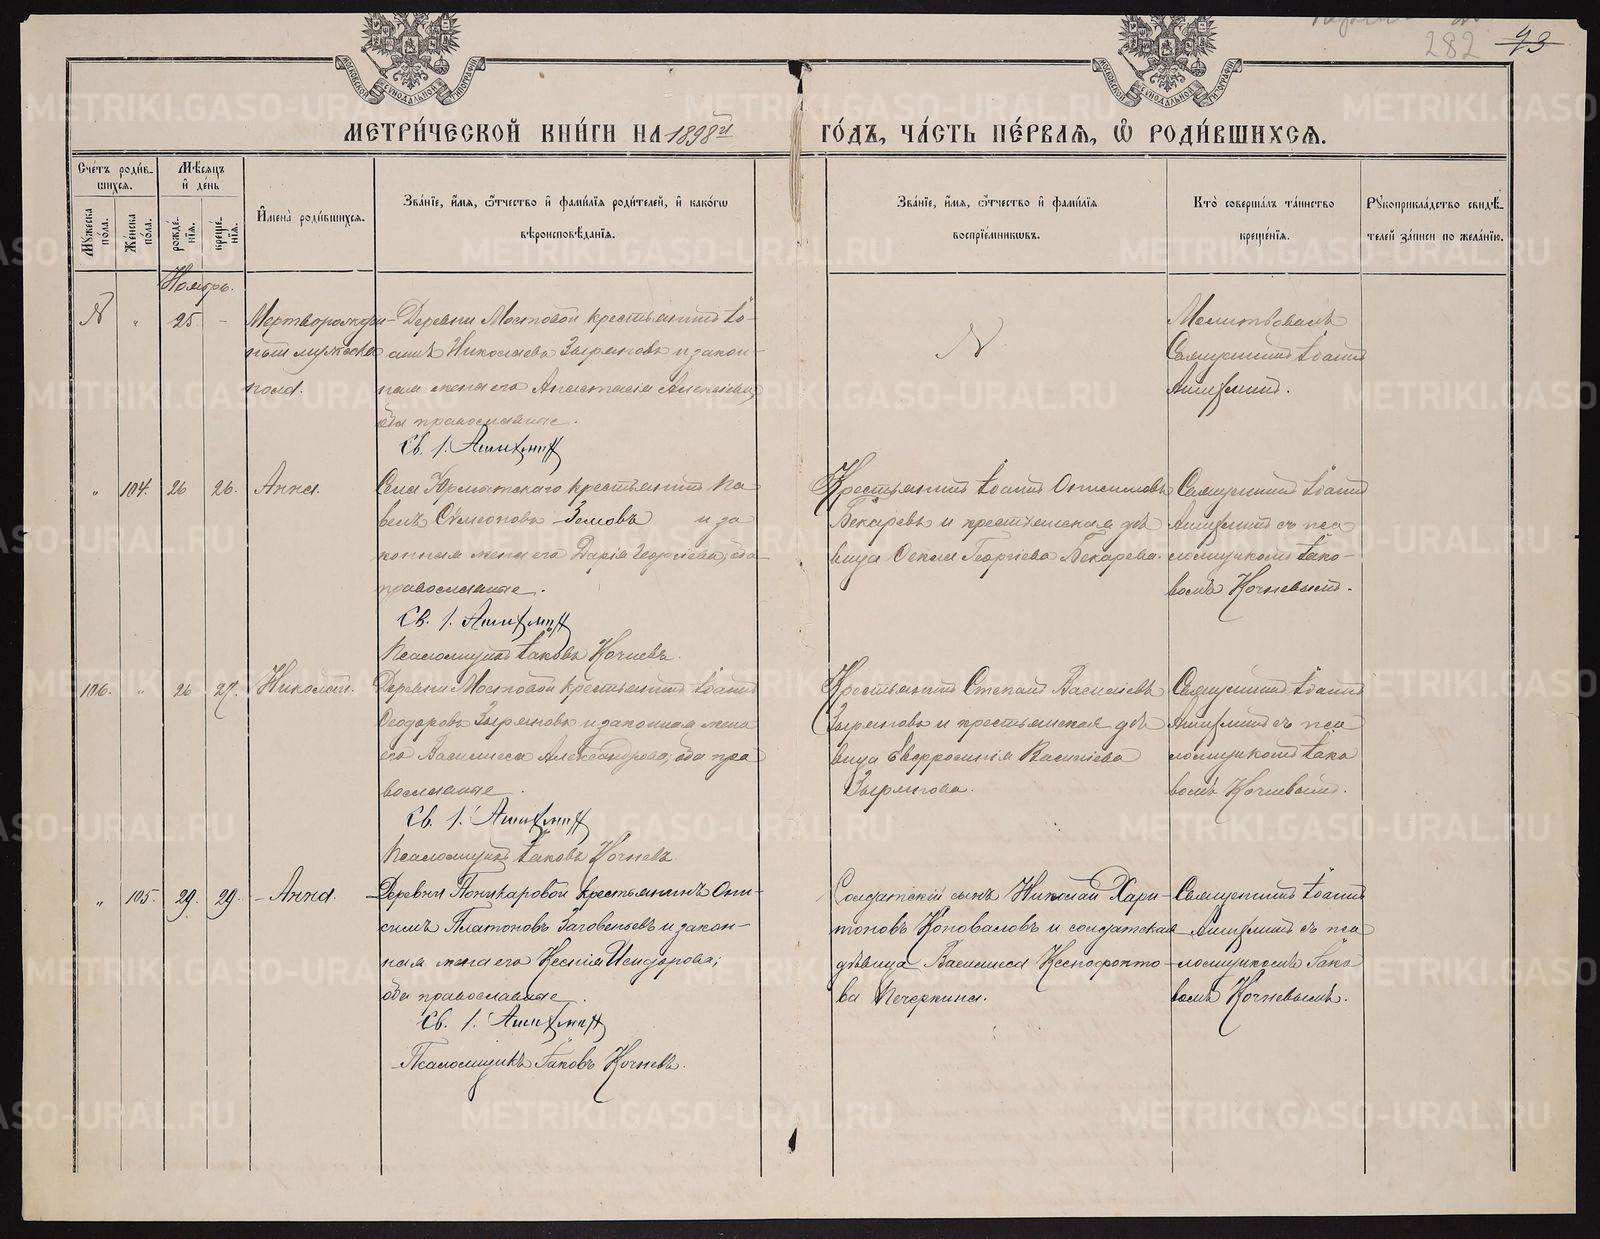 282 93
МЕТРИ́ЧЕСКОЙ КНИ́ГИ НА 1898й ГО́ДЪ, ЧА́СТЬ ПЕ́РВАѦ, Ѡ҆ РОДИ́ВШИХСѦ.
Сче́тъ роди́вшихсѧ.
Мꙋ́жеска по́ла.
Же́нска по́ла.
Мѣ́сѧцъ и҆ де́нь
рожде́нїѧ.
креще́нїѧ.
И҆мена̀ роди́вшихсѧ.
Зва́нїе, и҆́мѧ, ѻ҆́тчество и҆ фами́лїѧ роди́телей, и҆ како́гѡ
вѣроисповѣ́данїѧ.
Зва́нїе, и҆́мѧ, ѻ҆́тчество и҆ фами́лїѧ
воспрїе́мникѡвъ.
Кто̀ соверша́лъ та́инство
креще́нїѧ.
Рꙋкоприкла́дство свидѣ́телей за́писи по жела́нїю.
Ноябрь.
N " 25 –
Мертворожден-
ный мужескаго
пола.
Деревни Мостовой крестьянинъ Іо-
аннъ Николаевъ Зыряновъ и закон-
ная жена его Анастасія Алексіева,
оба православные.
Св. І. Ашихминъ
N
Молитвовалъ
Священникъ Іоаннъ
Ашихминъ.
" 104. 26 26. Анна.
Села Юрмытскаго крестьянинъ Па-
велъ Сѵмеоновъ Зоновъ и за-
конная жена его Дарія Георгіева, оба
православные.
Св. І. Ашихминъ
Псаломщикъ Іаковъ Кочневъ.
Крестьянинъ Іоаннъ Онисимовъ
Бекаревъ и крестьянская дѣ-
вица Ѳекла Георгіева Бекарева.
Священникъ Іоаннъ
Ашихминъ съ пса-
ломщикомъ Іако-
вомъ Кочневымъ.
106. " 26 27. Николай.
Деревни Мостовой крестьянинъ Іоаннъ
Ѳеодоровъ Зыряновъ и законная жена
его Василисса Александрова, оба пра-
вославные.
Св. І. Ашихминъ
Псаломщикъ Іаковъ Кочневъ
Крестьянинъ Стефанъ Василіевъ
Зыряновъ и крестьянская дѣ-
вица Евфросинія Василіева
Зырянова.
Священникъ Іоаннъ
Ашихминъ съ пса-
ломщикомъ Іако-
вомъ Кочневымъ.
" 105. 29. 29. Анна.
Деревни Поникаровой крестьянинъ Они-
симъ Платоновъ Заговеньевъ и закон-
ная жена его Ксенія Исидорова;
оба православные.
Св. І. Ашихминъ
Псаломщикъ Іаковъ Кочневъ.
Солдатскій сынъ Николай Хари-
тоновъ Коноваловъ и солдатская
дѣвица Василисса Ксенофонто-
ва Печеркина.
Священникъ Іоаннъ
Ашихминъ съ пса-
ломщикомъ Іако-
вомъ Кочневымъ.
METRIKI.GASO-URAL.RU